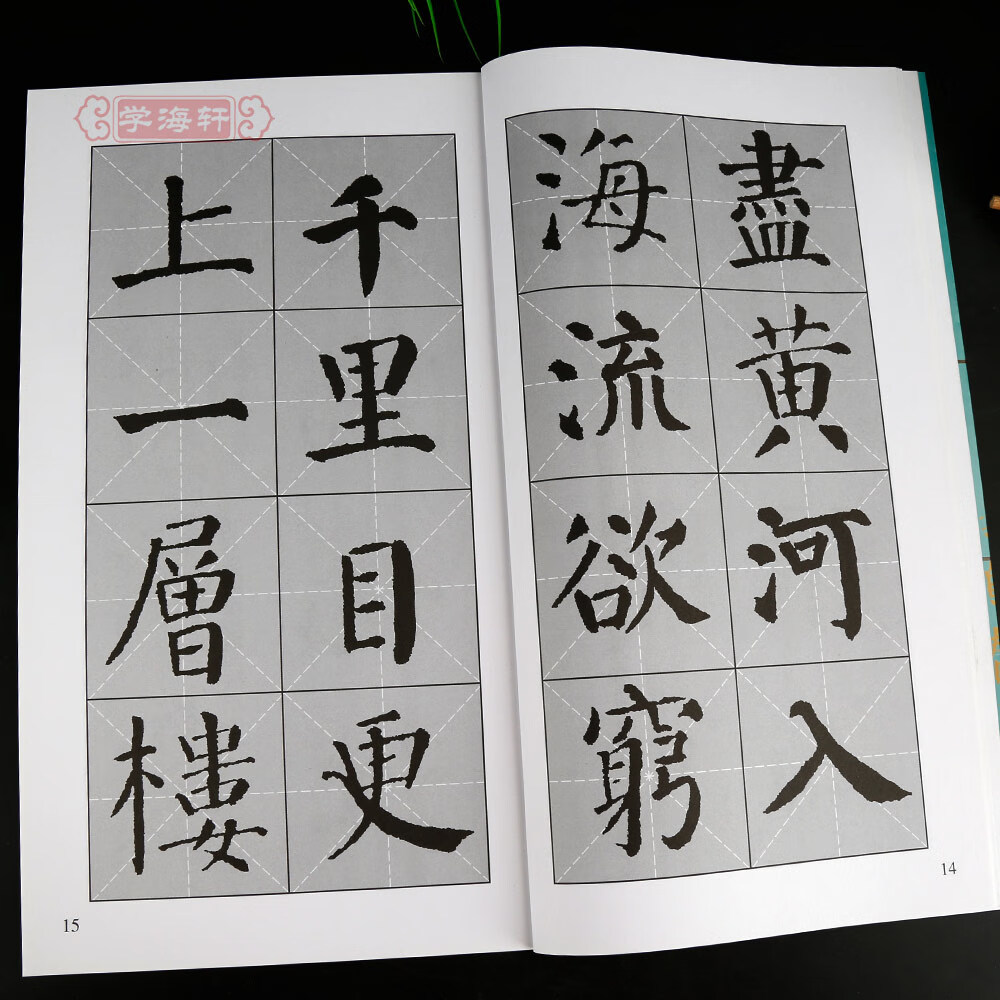 学海轩
盡黄河入
海流欲窮
14
千里目更
上一層樓
15